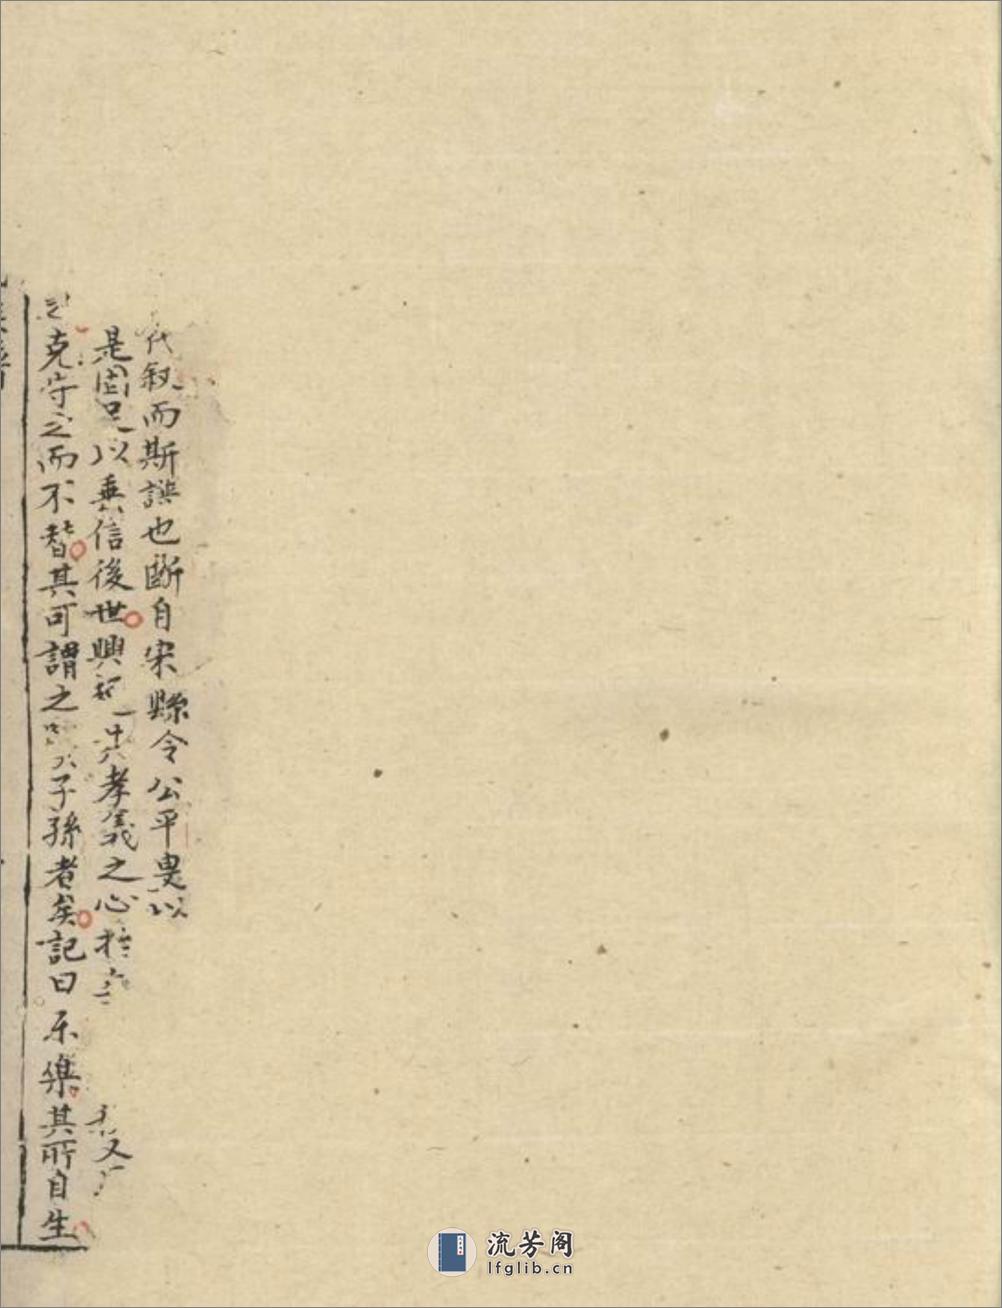 代叙而斯譔也断自宋縣令公平叟以
是固足以垂信後世興起 孝義之心
克守之而不替其可謂之 子孫者矣記曰乐樂其所自生
流芳阁
lfglib.cn